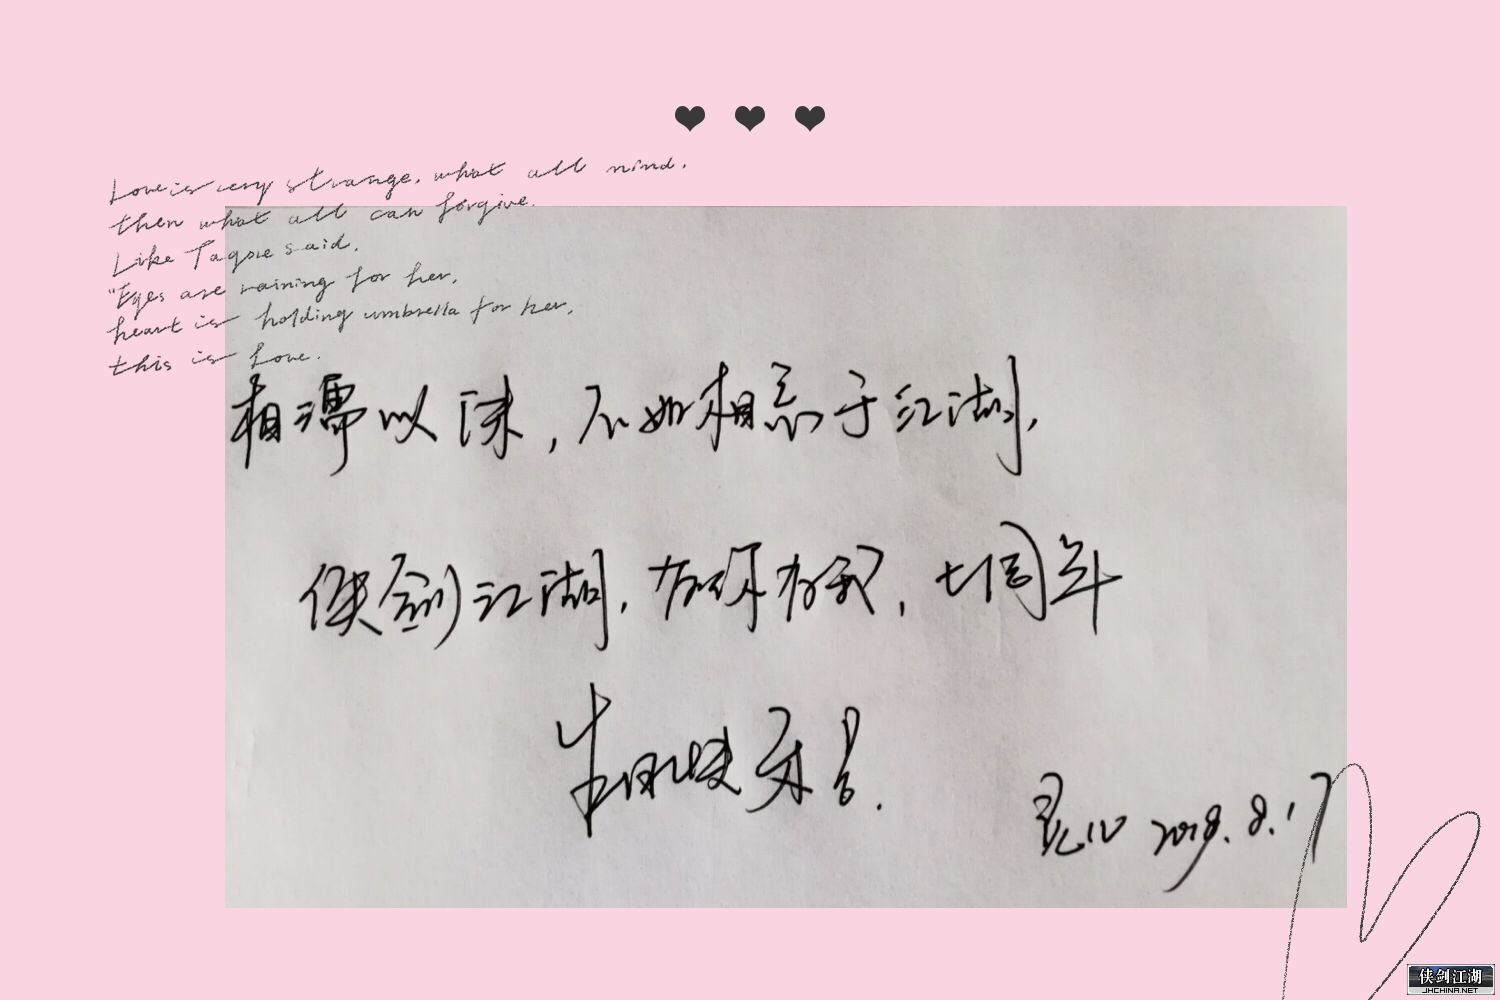 Love is very strange. what all mind.
then what all can forgive.
Like Tagore said.
"Eyes are raining for her.
heart is holding umbrella for her.
this is love.
相濡以沫，不如相忘于江湖，
侠剑江湖，有你有我，七周年
生日快乐！
2018.8.17
侠剑江湖
JHCHINA.NET